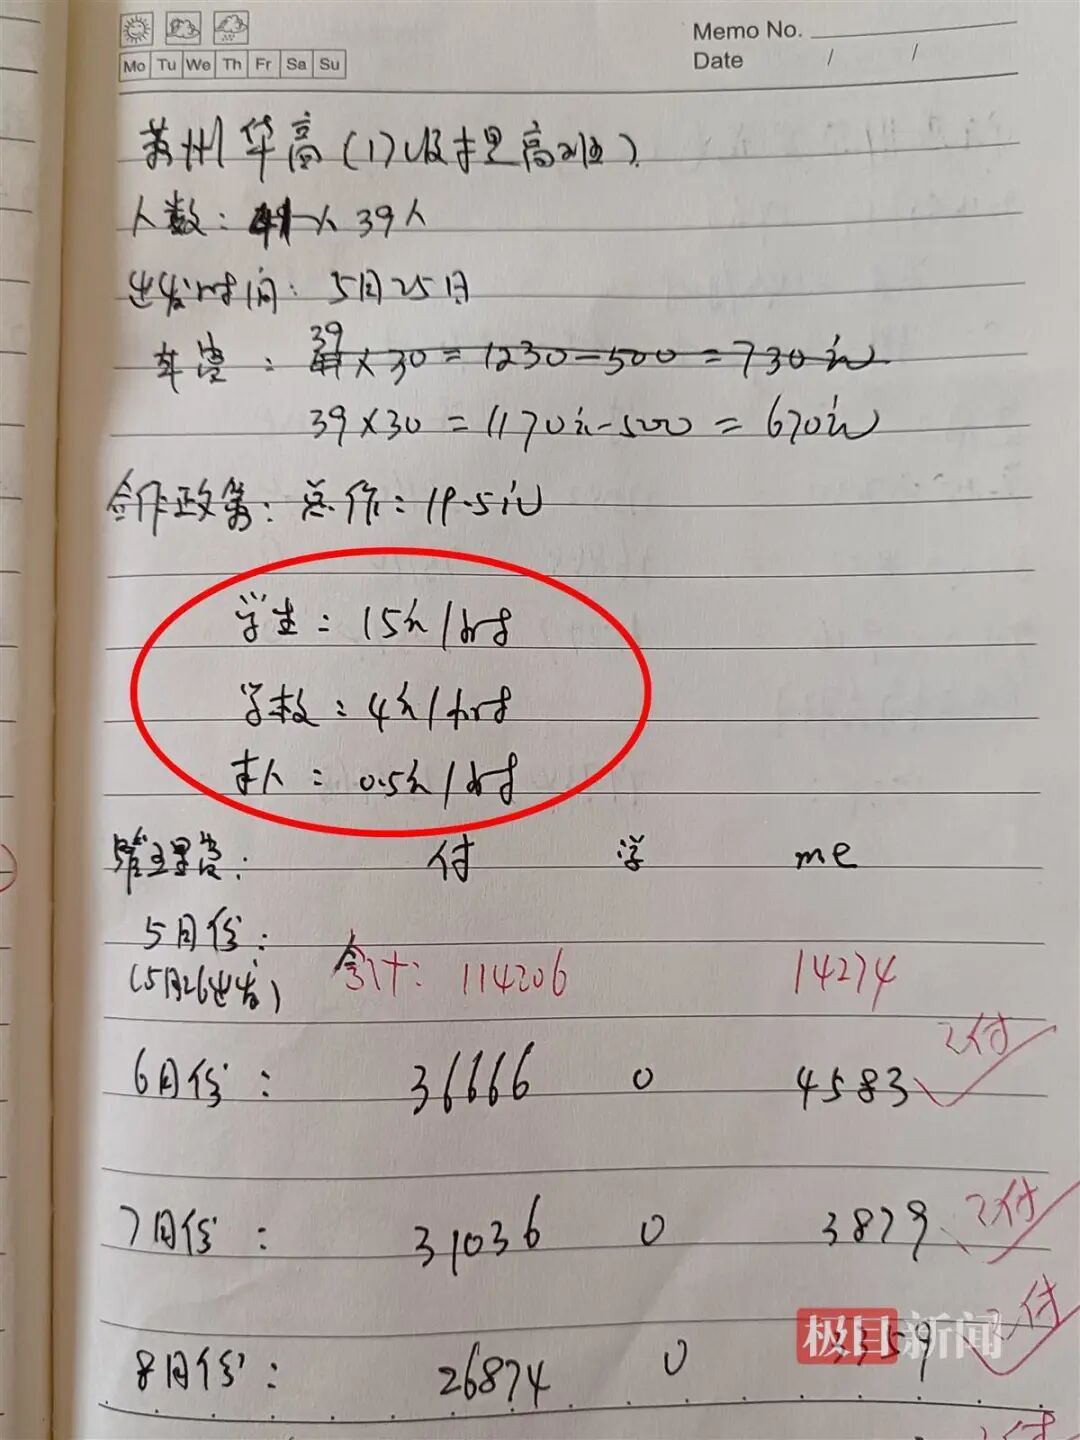 Memo No.
Date / /
Mo Tu We Th Fr Sa Su
苏州华高(17级提高班)
人数: 41人 39人
出发时间: 5月25日
车费: 39 41×30=1230-500=730元
39×30=1170元-500=670元
合作政策: 总价: 19.5元
学生: 15元/时
学校: 4元/时
本人: 0.5元/时
管理费: 付 学 me
5月份:
(5月26出发) 合计: 114206 14274
6月份: 36666 0 4583 已付
7月份: 31036 0 3879 已付
8月份: 26874 0 3359 已付
极目新闻